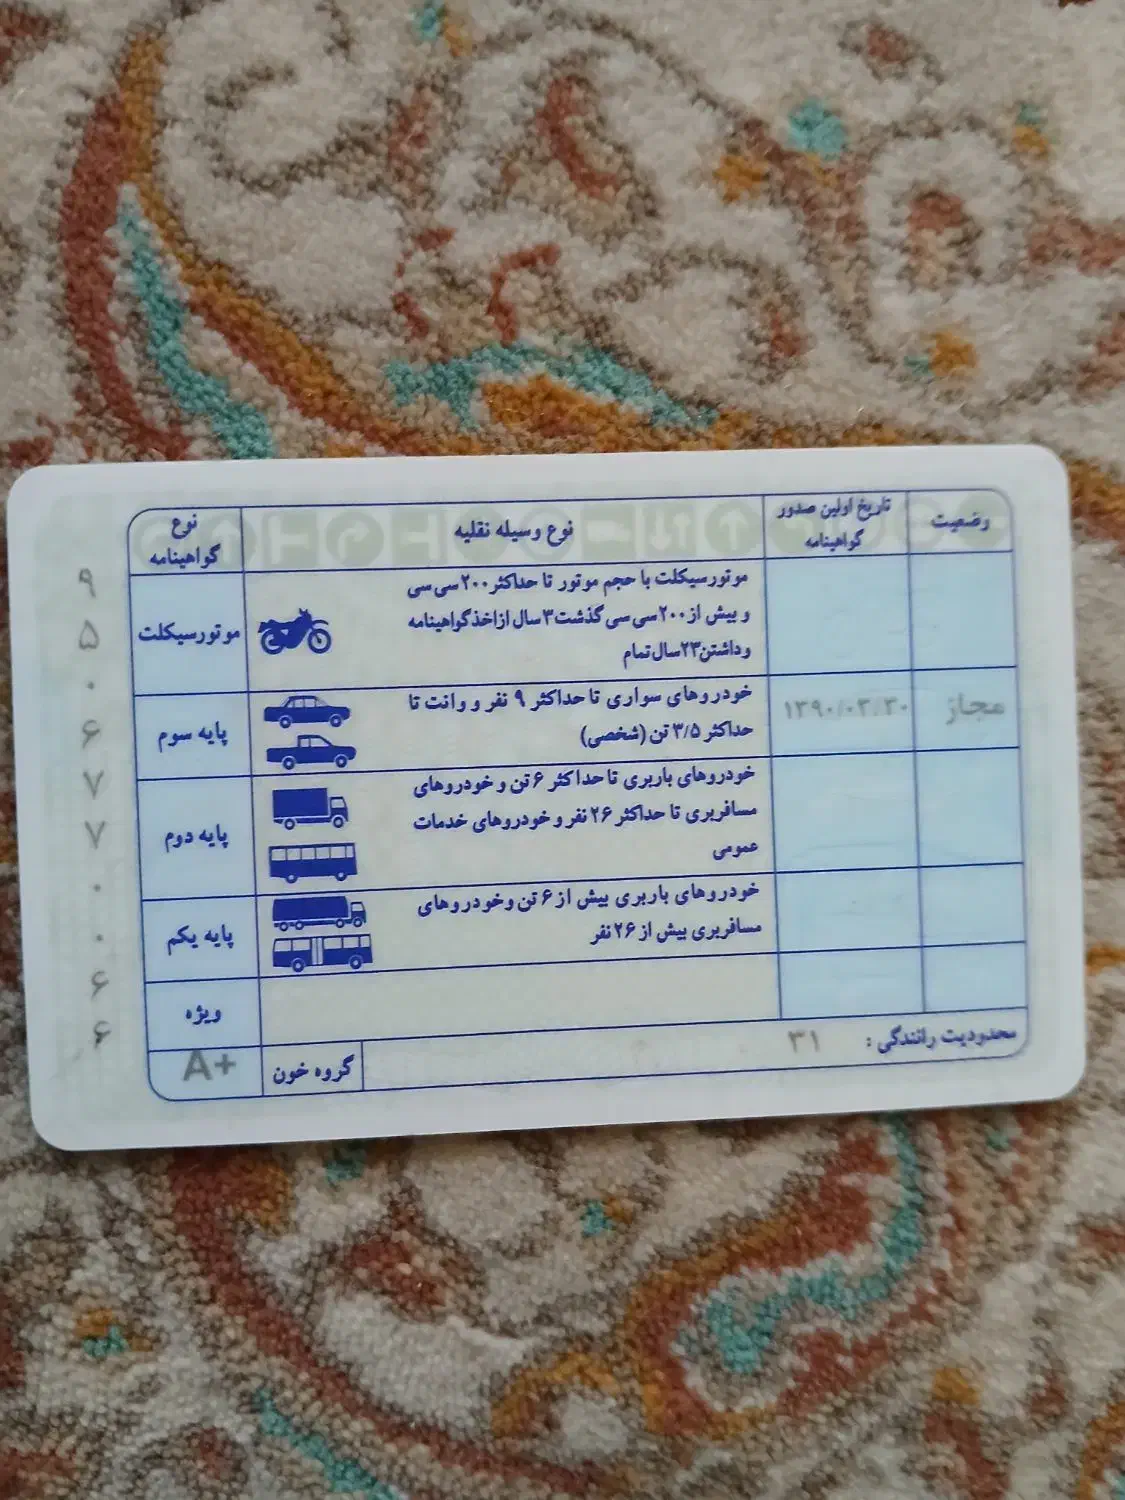 وضعیت
تاریخ اولین صدور
گواهینامه
نوع وسیله نقلیه
نوع
گواهینامه
موتورسیکلت با حجم موتور تا حداکثر ۲۰۰ سی سی
و بیش از ۲۰۰ سی سی گذشت ۳ سال از اخذ گواهینامه
و داشتن ۲۳ سال تمام
موتورسیکلت
مجاز
۱۳۹۰/۰۳/۳۰
خودروهای سواری تا حداکثر ۹ نفر و وانت تا
حداکثر ۳/۵ تن (شخصی)
پایه سوم
خودروهای باربری تا حداکثر ۶ تن و خودروهای
مسافربری تا حداکثر ۲۶ نفر و خودروهای خدمات
عمومی
پایه دوم
خودروهای باربری بیش از ۶ تن و خودروهای
مسافربری بیش از ۲۶ نفر
پایه یکم
ویژه
محدودیت رانندگی : ۳۱
گروه خون
A+
۹
۵
۰
۶
۷
۷
۰
۰
۶
۶